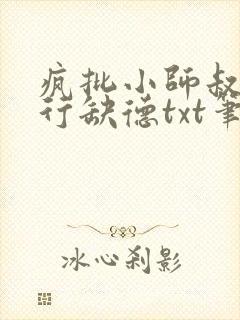 疯批小师叔
行缺德txt笔
冰心刹影